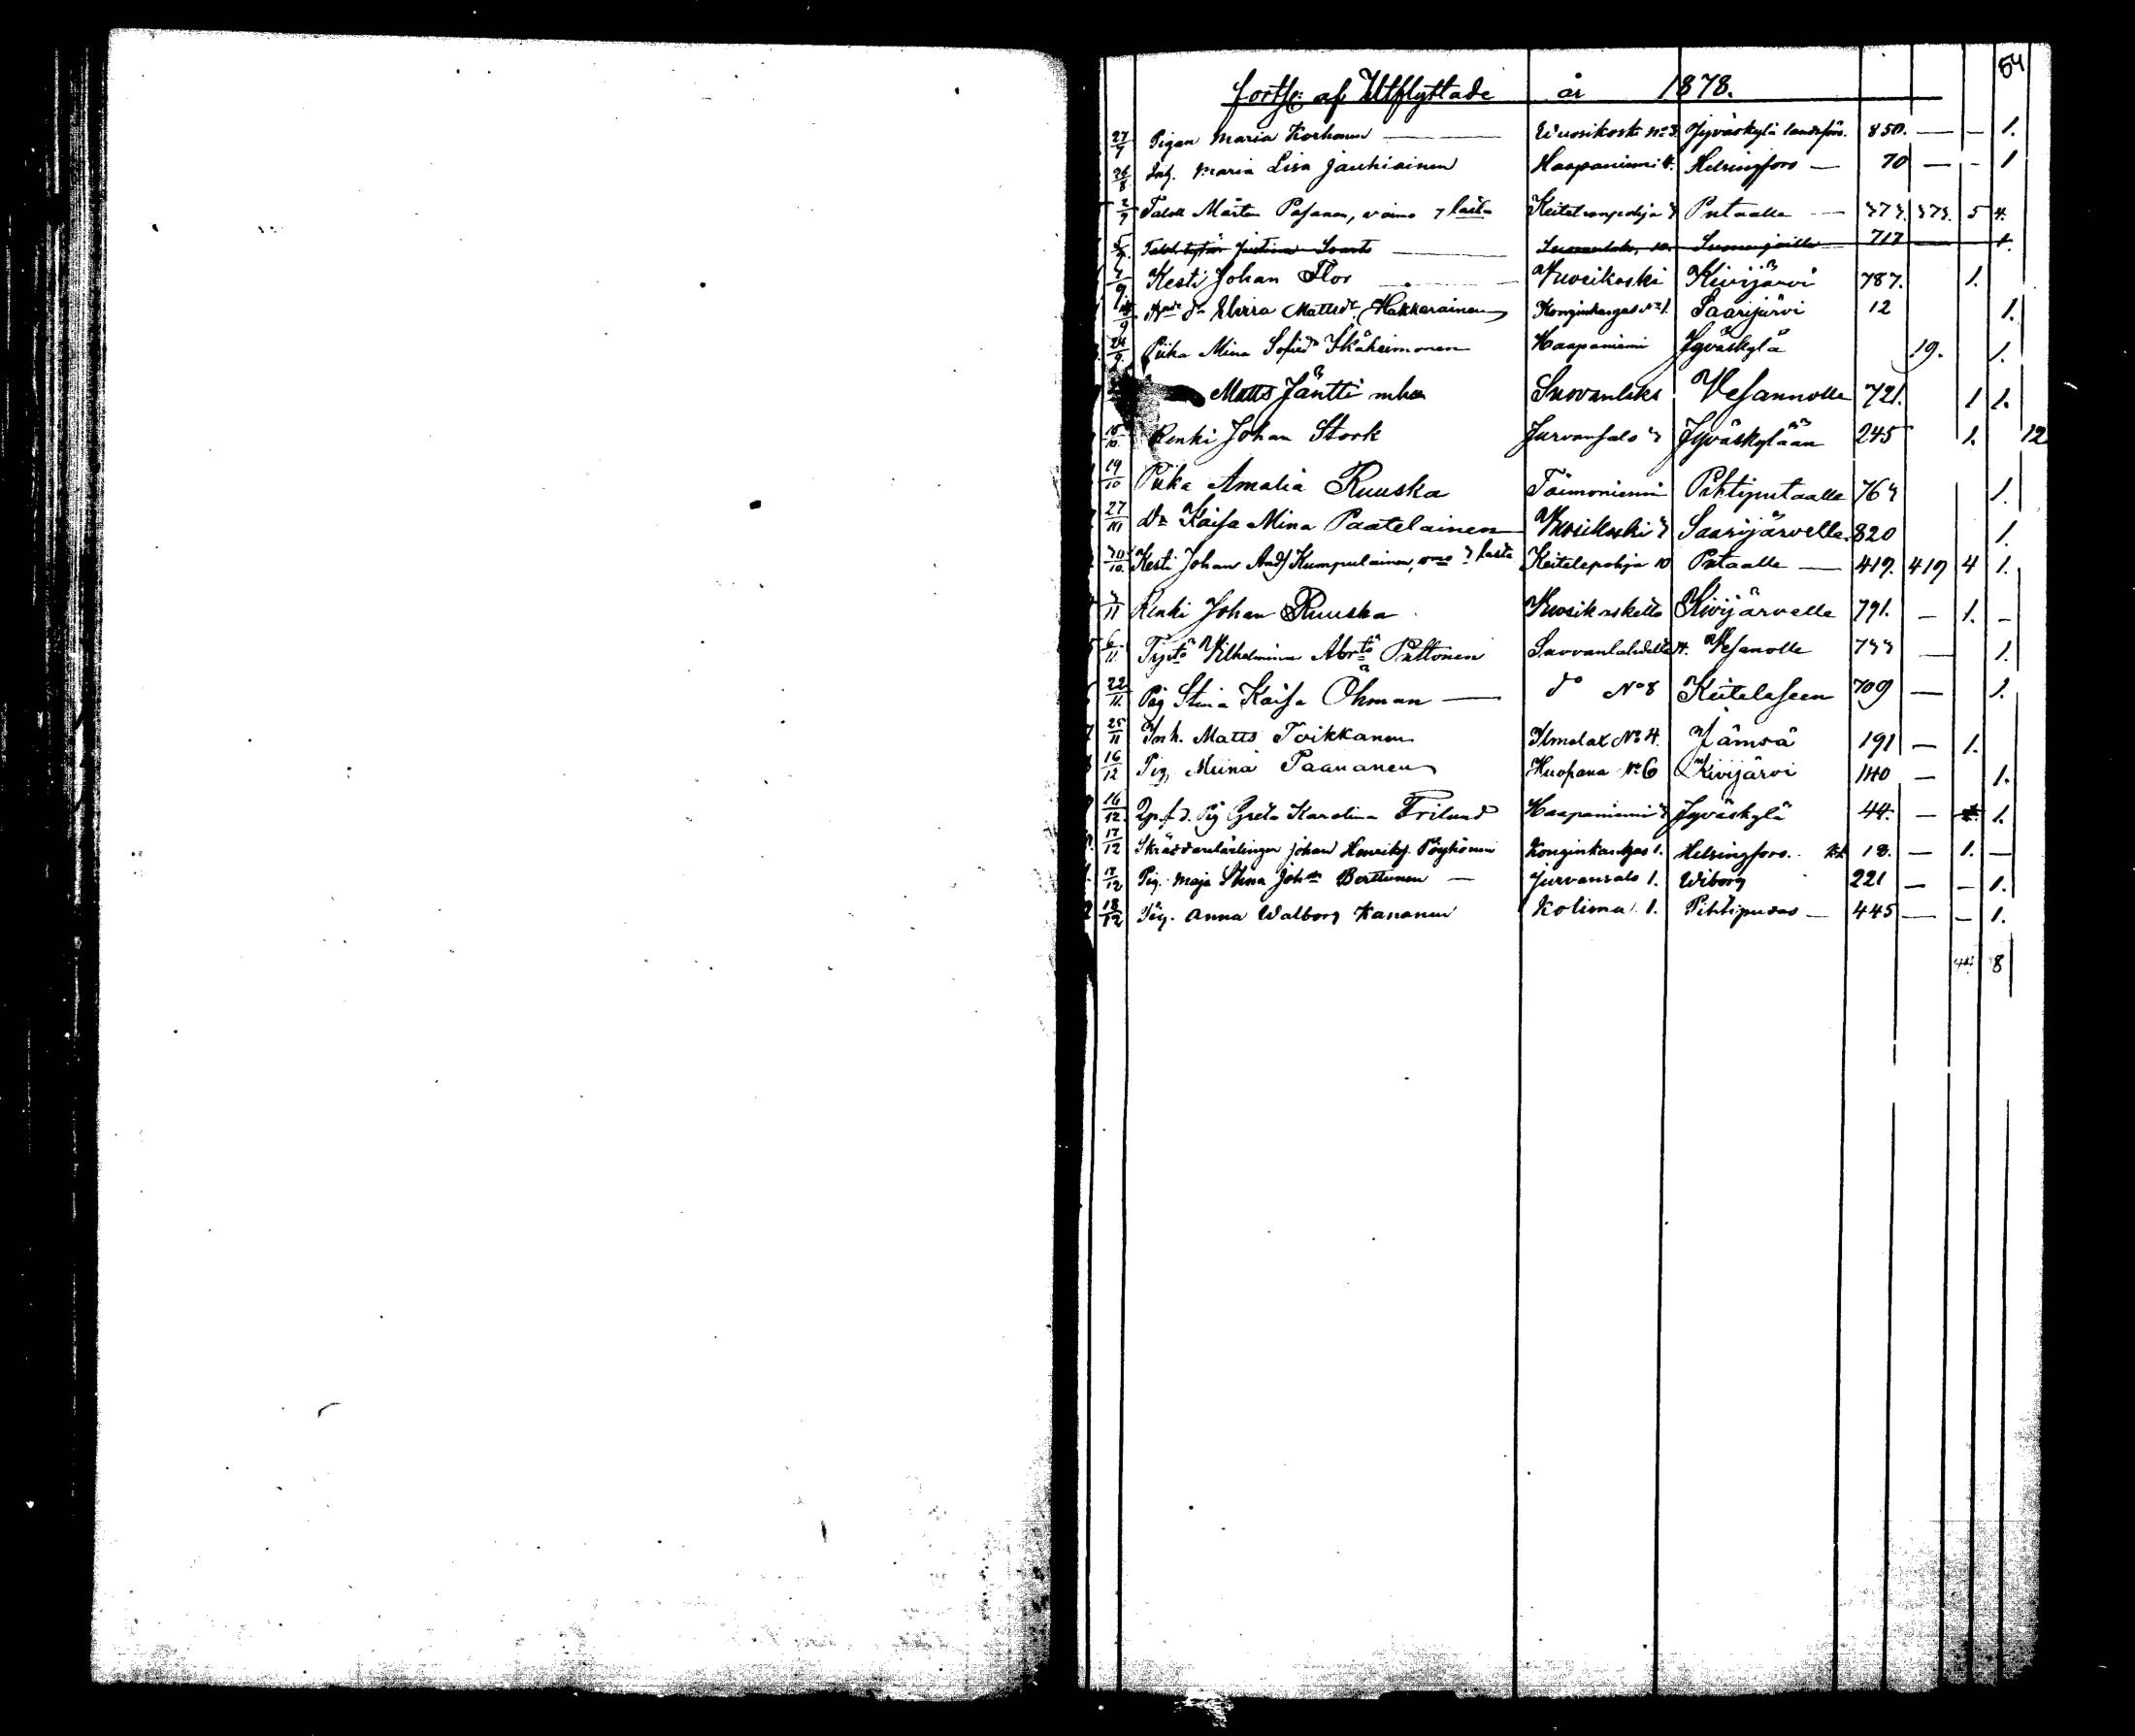 54
fortsc: af Utflyttade år 1878.
27/7 Pigan Maria Korhonen — Wuosikoski No 3. Jyväskylä landsförs. 850. — — 1.
26/8 Inh. Maria Lisa Jauhiainen Haapaniemi 4. Helsingfors — 70 — - 1
2/9 Talol. Mårten Pasanen, vaimo 7 lasta Keitelempohja 3 Putaalle — 373. 373. 5 4.
5/9 Justina — 717 — 1.
7/9 Kesti Johan Flor — Vuosikoski Kivijärvi 787. 1.
14/9 Elvira Mattsdr. Hakkarainen Konginkangas No 1. Saarijärvi 12 1.
24/9. Piika Mina Sofia Ikäheimonen Haapaniemi Jyväskylä 19. 1.
Matts Jäntti Suovanlaks Vesannolle 721. 1 1.
15/10. Renki Johan Stork Jurvansalo 3 Jyväskylään 245 1. 12
19/10 Piika Amalia Ruuska Taimoniemi Pihtiputaalle 763 1.
27/10 Do Kaisa Mina Paatelainen Vuosikoski 3 Saarijärvelle. 820 1.
30/10. Kesti Johan Andj Kumpulainen, vmo 3 lasta Keitelepohja 10 Putaalle — 419. 419 4 1.
3/11 Renki Johan Ruuska Vuosikoskelta Kivijärvelle 791. — 1. -
6/11. Tytö Vilhelmina Abrtö Puttonen Suovanlahdelta 4. Vesanolle 733 — 1.
22/11. Pig Stina Kaisa Öhman — do No 8 Keiteleseen 709 — 1.
25/11 Inh. Matts Toikkanen Ilmolax No 4. Jämsä 191 — 1.
16/12 Pig. Miina Paananen Huopana No 6 Kivijärvi 140 — 1.
16/12. Pig Greta Karolina Frilund Haapaniemi 3 Jyväskylä 44. — 1.
17/12 Skräddarelärlingen Johan Henriksj. Pöyhönen Konginkangas 1. Helsingfors. 18. — 1. —
17/12 Pig. Maja Stina Johdr Berttunen — Jurvansalo 1. Wiborg 221 — — 1.
18/12 Pig. Anna Walborg Kananen Kolima 1. Pihtipudas — 445 — — 1.
44 8